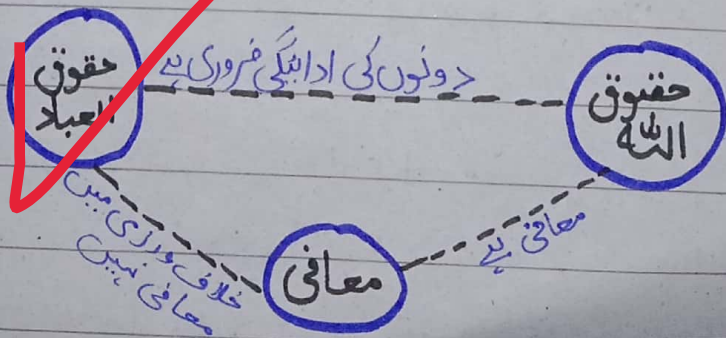 حقوق
اللہ
دونوں کی ادائیگی ضروری ہے
حقوق
العباد
معافی ہے
معافی
خلاف ورزی میں
معافی نہیں